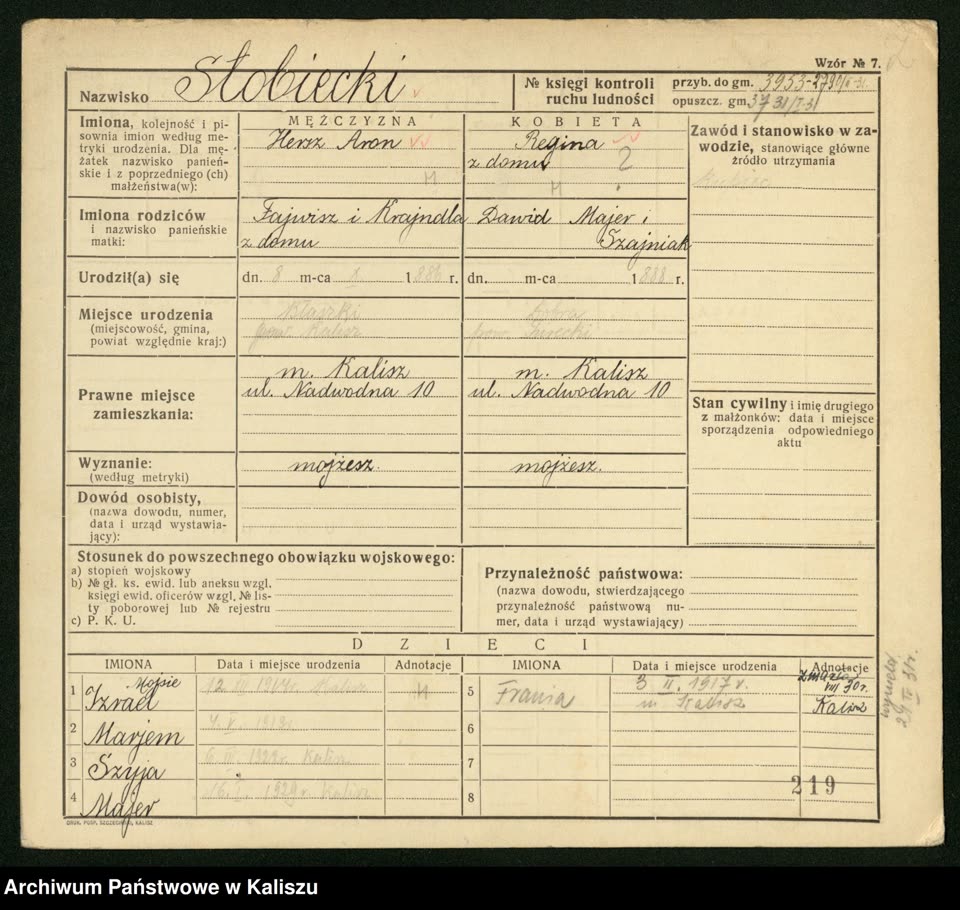 Wzór № 7.
Nazwisko Słobiecki
№ księgi kontroli
ruchu ludności
przyb. do gm. 3953
opuszcz. gm.
Imiona, kolejność i pi-
sownia imion według me-
tryki urodzenia. Dla mę-
żatek nazwisko panień-
skie i z poprzedniego (ch)
małżeństwa(w):
MĘŻCZYZNA
Hersz Aron
M
KOBIETA
Regina
z domu 2
M
Zawód i stanowisko w za-
wodzie, stanowiące główne
źródło utrzymania
Imiona rodziców
i nazwisko panieńskie
matki:
Fajwisz i Krajndla
z domu
Dawid Majer i
Szajniak
Urodził(a) się
dn. 8 m-ca 1 1886 r.
dn. m-ca 1888 r.
Miejsce urodzenia
(miejscowość, gmina,
powiat względnie kraj:)
Błaszki
pow. Kalisz
Dobra
pow. Turecki
Prawne miejsce
zamieszkania:
m. Kalisz
ul. Nadwodna 10
m. Kalisz
ul. Nadwodna 10
Stan cywilny i imię drugiego
z małżonków: data i miejsce
sporządzenia odpowiedniego
aktu
Wyznanie:
(według metryki)
mojżesz.
mojżesz.
Dowód osobisty,
(nazwa dowodu, numer,
data i urząd wystawia-
jący):
Stosunek do powszechnego obowiązku wojskowego:
a) stopień wojskowy
b) № gł. ks. ewid. lub aneksu wzgl.
księgi ewid. oficerów wzgl, № lis-
ty poborowej lub № rejestru
c) P. K. U.
Przynależność państwowa:
(nazwa dowodu, stwierdzającego
przynależność państwową nu-
mer, data i urząd wystawiający)
DZIECI
IMIONA
Data i miejsce urodzenia
Adnotacje
IMIONA
Data i miejsce urodzenia
Adnotacje
1 Mojsie
Izrael
Kalisz
M
2 Marjem
3 Szyja
Kalisz
4 Majer
Kalisz
5 Frania
3 II. 1917 r.
m Kalisz
zmarła
VIII 30 r.
Kalisz
6
7
8
219
DRUK. POSP. SZCZECIŃSKI, KALISZ
Archiwum Państwowe w Kaliszu